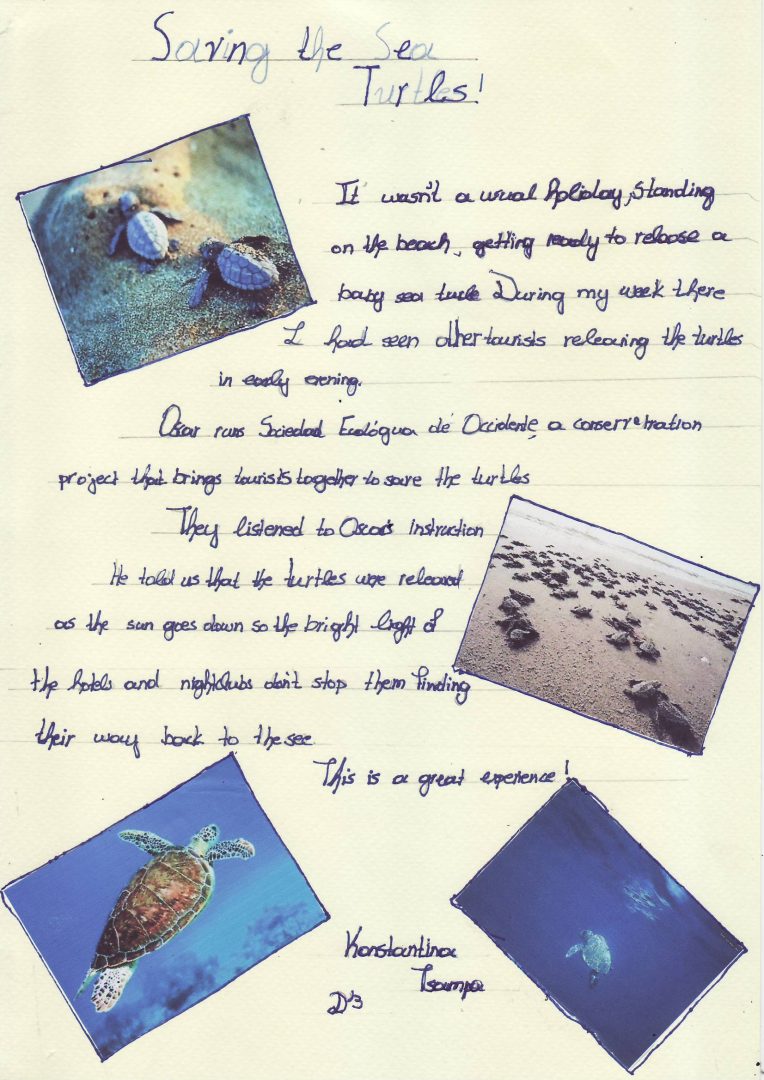 Saving the Sea
Turtles!
It wasn't a usual holiday, standing
on the beach, getting ready to release a
baby sea turtle During my week there
I had seen other tourists releasing the turtles
in early evening.
Oscar runs Sociedad Ecológua dé Occidente, a conservation
project that brings tourists together to save the turtles
They listened to Oscar's instruction
He told us that the turtles were released
as the sun goes down so the bright light of
the hotels and nightclubs don't stop them finding
their way back to the see.
This is a great experience!
Konstantina
Tsampa
D'3